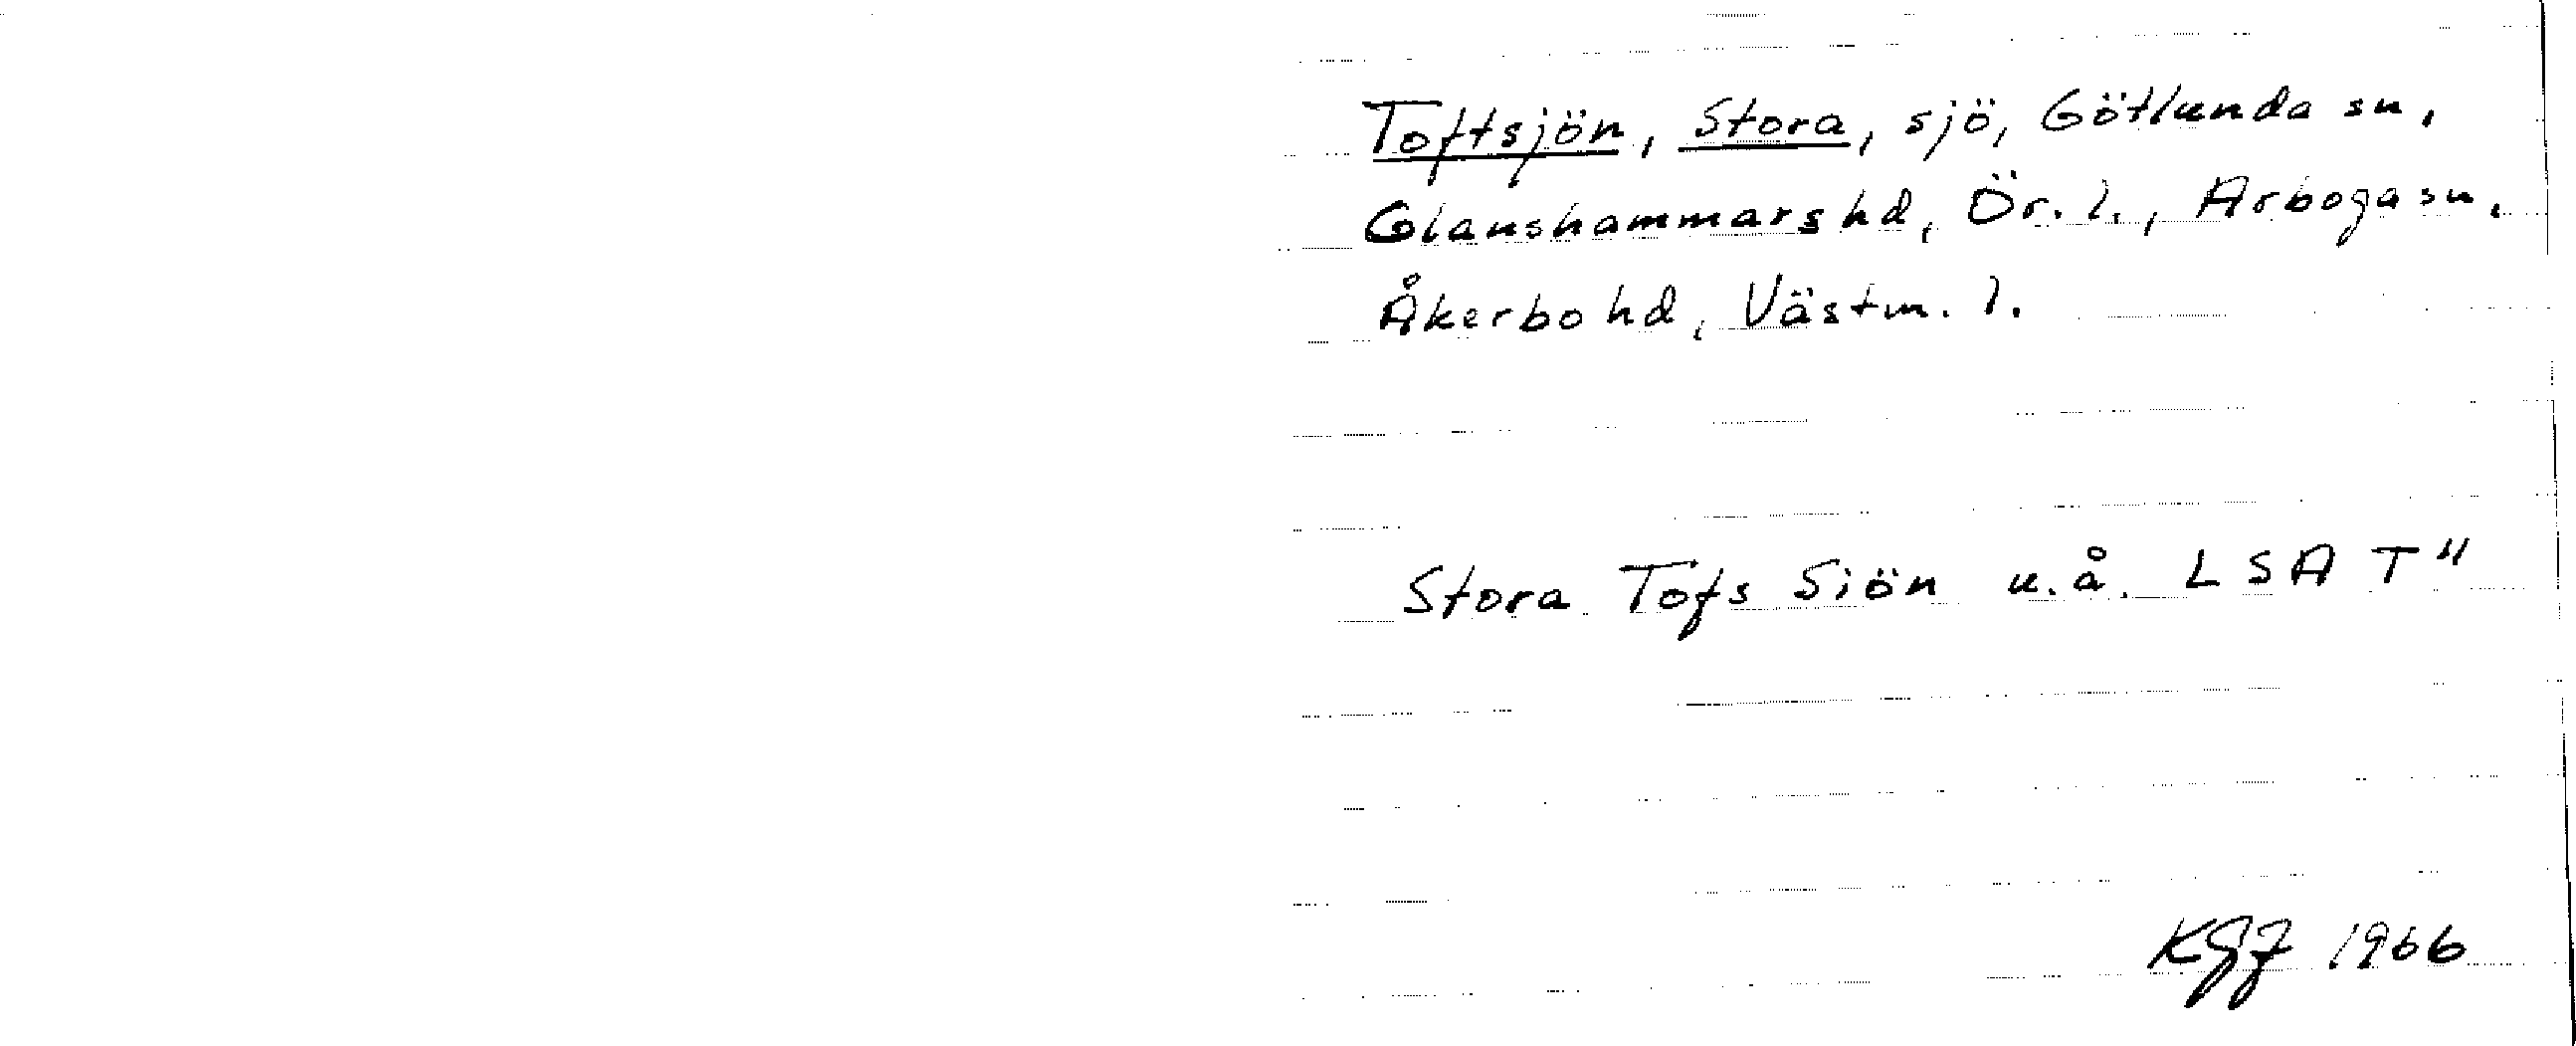 Toftsjön, Stora, sjö, Götlunda sn,
Glanshammars hd, Ör. l., Arboga sn,
Åkerbo hd, Västm. l.
Stora Tofs Siön u.å. LSA T"
KGJ 1966